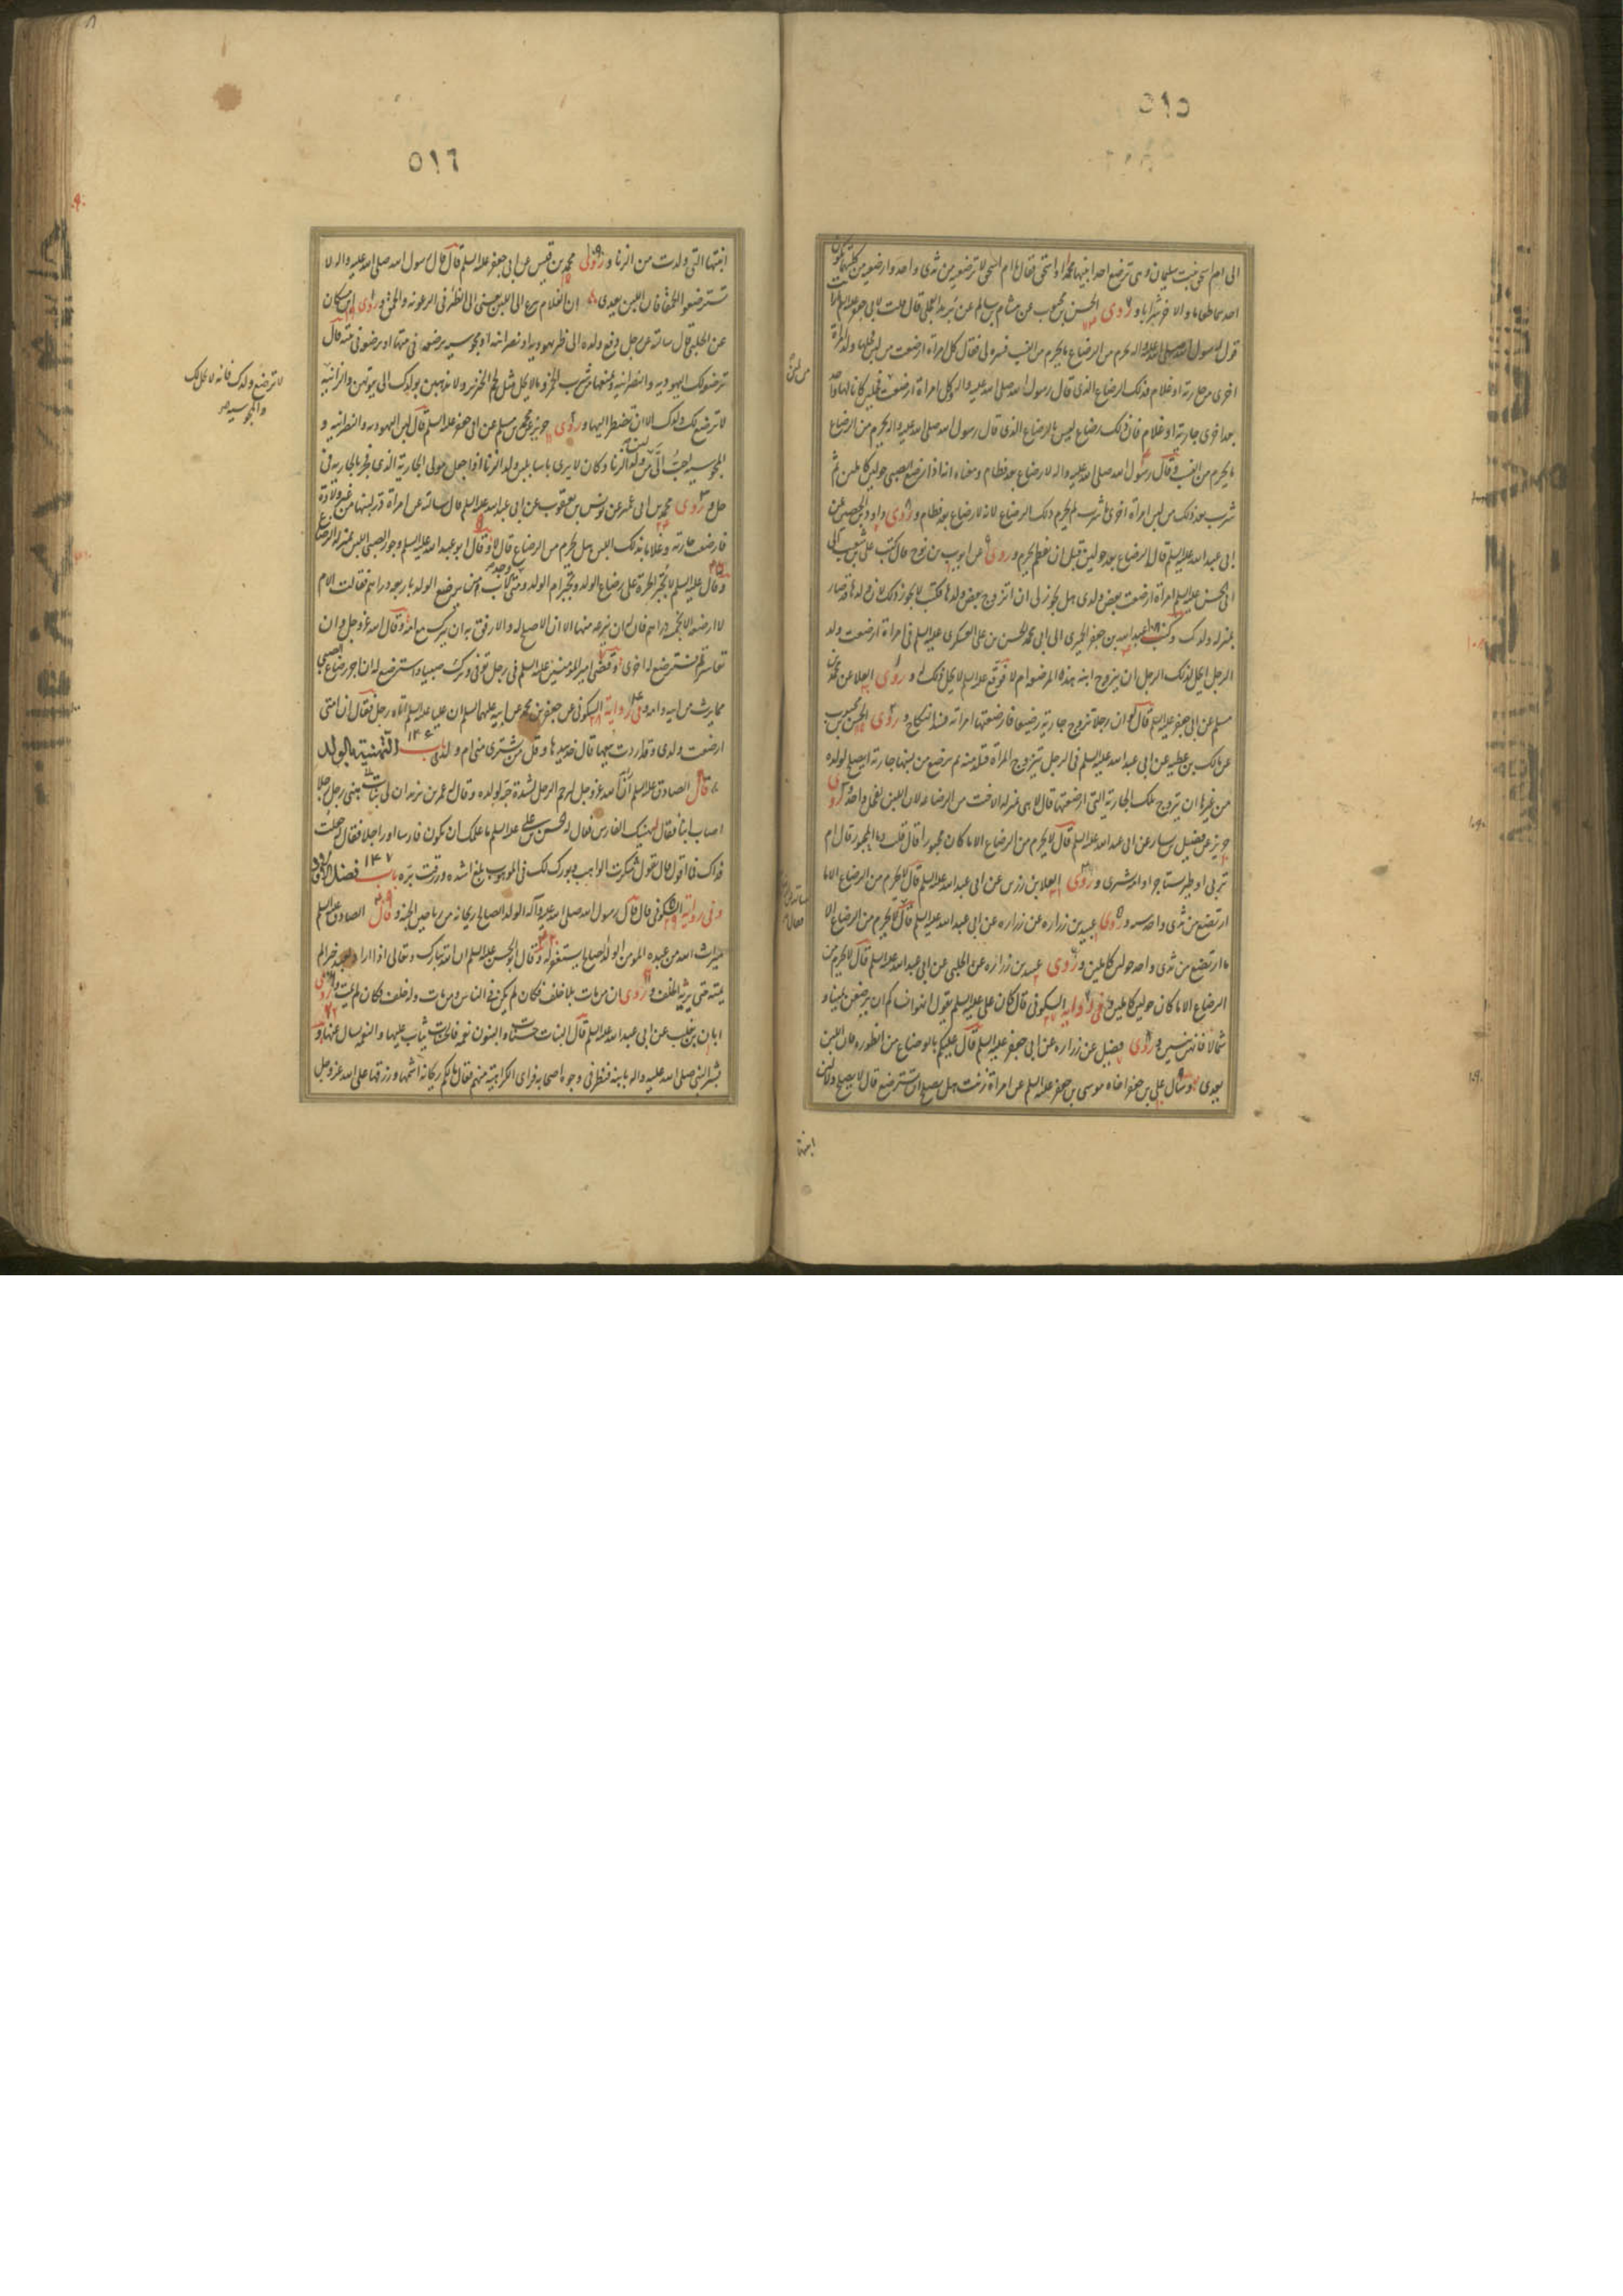 ٥١٥
الى ام اسحق بنت سليمان وهى ترضع احد ابنيها محمدا او اسحق فقال يا ام اسحق لا ترضعيه من ثدى واحد وارضعيه من كليهما يكون
احدهما طعاما والاخر شرابا و روى الحسن بن محبوب عن هشام بن سالم عن بريد العجلى قال قلت لابى جعفر عليه السلم ارايت
قول رسول الله صلى الله عليه واله يحرم من الرضاع ما يحرم من النسب فسره لى فقال كل امراة ارضعت من لبن فحلها ولد امراة
اخرى من جارية او غلام فذلك الرضاع الذى قال رسول الله صلى الله عليه واله وكل امراة ارضعت من لبن فحلين كانا لها واحدا
بعد اخرى جارية او غلام فان ذلك رضاع ليس بالرضاع الذى قال رسول الله صلى الله عليه واله يحرم من الرضاع
ما يحرم من النسب وقال رسول الله صلى الله عليه واله لا رضاع بعد فطام ومعناه انه اذا ارضع الصبى حولين كاملين ثم
شرب بعد ذلك من لبن امراة اخرى ما شرب لم يحرم ذلك الرضاع لانه لا رضاع بعد فطام و روى داود بن الحصين عن
ابى عبد الله عليه السلم قال الرضاع بعد حولين قبل ان يفطم يحرم و روى عن ايوب بن نوح قال كتب على بن شعيب الى
ابى الحسن عليه السلم امراة ارضعت بعض ولدى هل يجوز لى ان اتزوج بعض ولدها فكتب لا يجوز ذلك لان ولدها قد صار
بمنزله ولدك وكتب عبد الله بن جعفر الحميرى الى ابى محمد الحسن بن على العسكرى عليه السلم فى امراة ارضعت ولد
الرجل ايحل لذلك الرجل ان يتزوج ابنة هذه المرضعه ام لا فوقع عليه السلم لا يحل ذلك له و روى العلا عن محمد بن
مسلم عن ابى جعفر عليه السلم قال لو ان رجلا تزوج جارية رضيعا فارضعتها امراته فسد النكاح و روى الحسن بن محبوب
عن مالك بن عطيه عن ابى عبد الله عليه السلم فى الرجل يتزوج المراة فتلد منه ثم ترضع من لبنها جارية ايصلح لولده
من غيرها ان يتزوج تلك الجارية التى ارضعتها قال لا هى بمنزله الاخت من الرضاعه لان اللبن لفحل واحد و روى
حريز عن فضيل بن يسار عن ابى عبد الله عليه السلم قال لا يحرم من الرضاع الا ما كان مجبورا قال قلت وما المجبور قال ام
تربى او ظير تستاجر او امة تشترى و روى العلا بن رزين عن ابى عبد الله عليه السلم قال لا يحرم من الرضاع الا ما
ارتضع من ثدى واحد سنه و روى عبيد بن زراره عن زراره عن ابى عبد الله عليه السلم قال لا يحرم من الرضاع الا
ما ارتضع من ثدى واحد حولين كاملين و روى عبيد بن زراره عن الحلبى عن ابى عبد الله عليه السلم قال لا يحرم من
الرضاع الا ما كان حولين كاملين و فى رواية السكونى قال كان على عليه السلم يقول انهوا نساكم ان يرضعن يمينا و
شمالا فانهن ينسين و روى فضيل عن زراره عن ابى جعفر عليه السلم قال عليكم بالوضاء من الظوره فان اللبن
يعدى وسال على بن جعفر اخاه موسى بن جعفر عليه السلم عن امراة زنت هل يصلح ان تسترضع قال لا يصلح ولا لبن
ابنتها
٥١٦
ابنتها التى ولدت من الزنا و روى محمد بن قيس عن ابى جعفر عليه السلم قال قال رسول الله صلى الله عليه واله لا
تسترضعوا الحمقا فان اللبن يعدى وان الغلام ينزع الى اللبن يعنى الى الظئر فى الرعونه والحمق و روى ابن مسكان
عن الحلبى قال سالته عن رجل دفع ولده الى ظئر يهودية او نصرانية او مجوسيه ترضعه فى بيتها او ترضعه فى بيته قال
ترضعه لك اليهوديه والنصرانيه وتمنعها من شرب الخمر وما لا يحل مثل لحم الخنزير ولا يذهبن بولدك الى بيوتهن والزانيه
لا ترضع لك ولدك الا ان تضطر اليها و روى حريز عن محمد بن مسلم عن ابى جعفر عليه السلم قال لبن اليهوديه والنصرانيه و
المجوسيه احب الى من لبن ولد الزنا وكان لا يرى باسا بلبن ولد الزنا اذا جعل مولى الجارية الذى فجر بالجاريه فى
حل و روى محمد بن ابى عمير عن يونس بن يعقوب عن ابى عبد الله عليه السلم قال سالته عن امراة در لبنها من غير ولادة
فارضعت جارية وغلاما بذلك اللبن هل يحرم من الرضاع قال لا وقال ابو عبد الله عليه السلم وجور الصبى اللبن بمنزله الرضاع
وقال عليه السلم لا تجبر الحرة على رضاع الولد وتجبر ام الولد ومتى وجد الاب من يرضع الولد باربعه دراهم فقالت الام
لا ارضعه الا بخمسه دراهم فان له ان ينزعه منها الا ان الاصلح له والارفق به ان يتركه مع امه وقال الله عز وجل وان
تعاسرتم فسترضع له اخرى وقضى امير المومنين عليه السلم فى رجل توفى وترك صبيا واسترضع له ان اجر رضاع الصبى
مما يرث من ابيه وامه و فى رواية السكونى عن جعفر بن محمد عن ابيه عليهما السلم ان عليا عليه السلم اتاه رجل فقال ان امتى
ارضعت ولدى وقد اردت بيعها قال خذ بيدها وقل من يشترى منى ام ولدى باب ١٤٦ التهنية بالولد
قال الصادق عليه السلم ان الله عز وجل ليرحم الرجل لشدة حبه لولده وقال له عمر بن يزيد ان لى بنات هنى رجل رجلا
اصاب ابنا فقال يهنيك الفارس فقال له الحسن بن على عليه السلم ما علمك ان يكون فارسا او راجلا فقال جعلت
فداك فما اقول قال تقول شكرت الواهب وبورك لك فى الموهوب بلغ اشده ورزقت بره باب ١٤٧ فضل الاولاد
وفى رواية السكونى قال قال رسول الله صلى الله عليه وآله الولد الصالح ريحانه من رياحين الجنه و قال الصادق عليه السلم
ميراث الله من عبده المومن الولد الصالح يستغفر له وقال ابو الحسن عليه السلم ان الله تبارك وتعالى اذا اراد بعبد خيرا لم
يمته حتى يريه الخلف و روى ان من مات بلا خلف فكان لم يكن فى الناس ومن مات وله خلف فكان لم يمت و روى
ابان بن تغلب عن ابى عبد الله عليه السلم قال البنات حسنات والبنون نعمه فالحسنات يثاب عليها والنعمه يسال عنها و
بشر النبى صلى الله عليه واله بابنه فنظر فى وجوه اصحابه فراى الكراهيه منهم فقال مالكم ريحانه اشمها ورزقها على الله عز وجل
لا ترضع ولدك فانه لا يحل لك
والمجوسيه صح